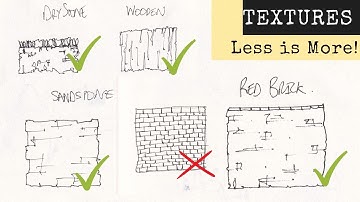 DRYSTONE
WOODEN
TEXTURES
Less is More!
SANDSTONE
RED BRICK.